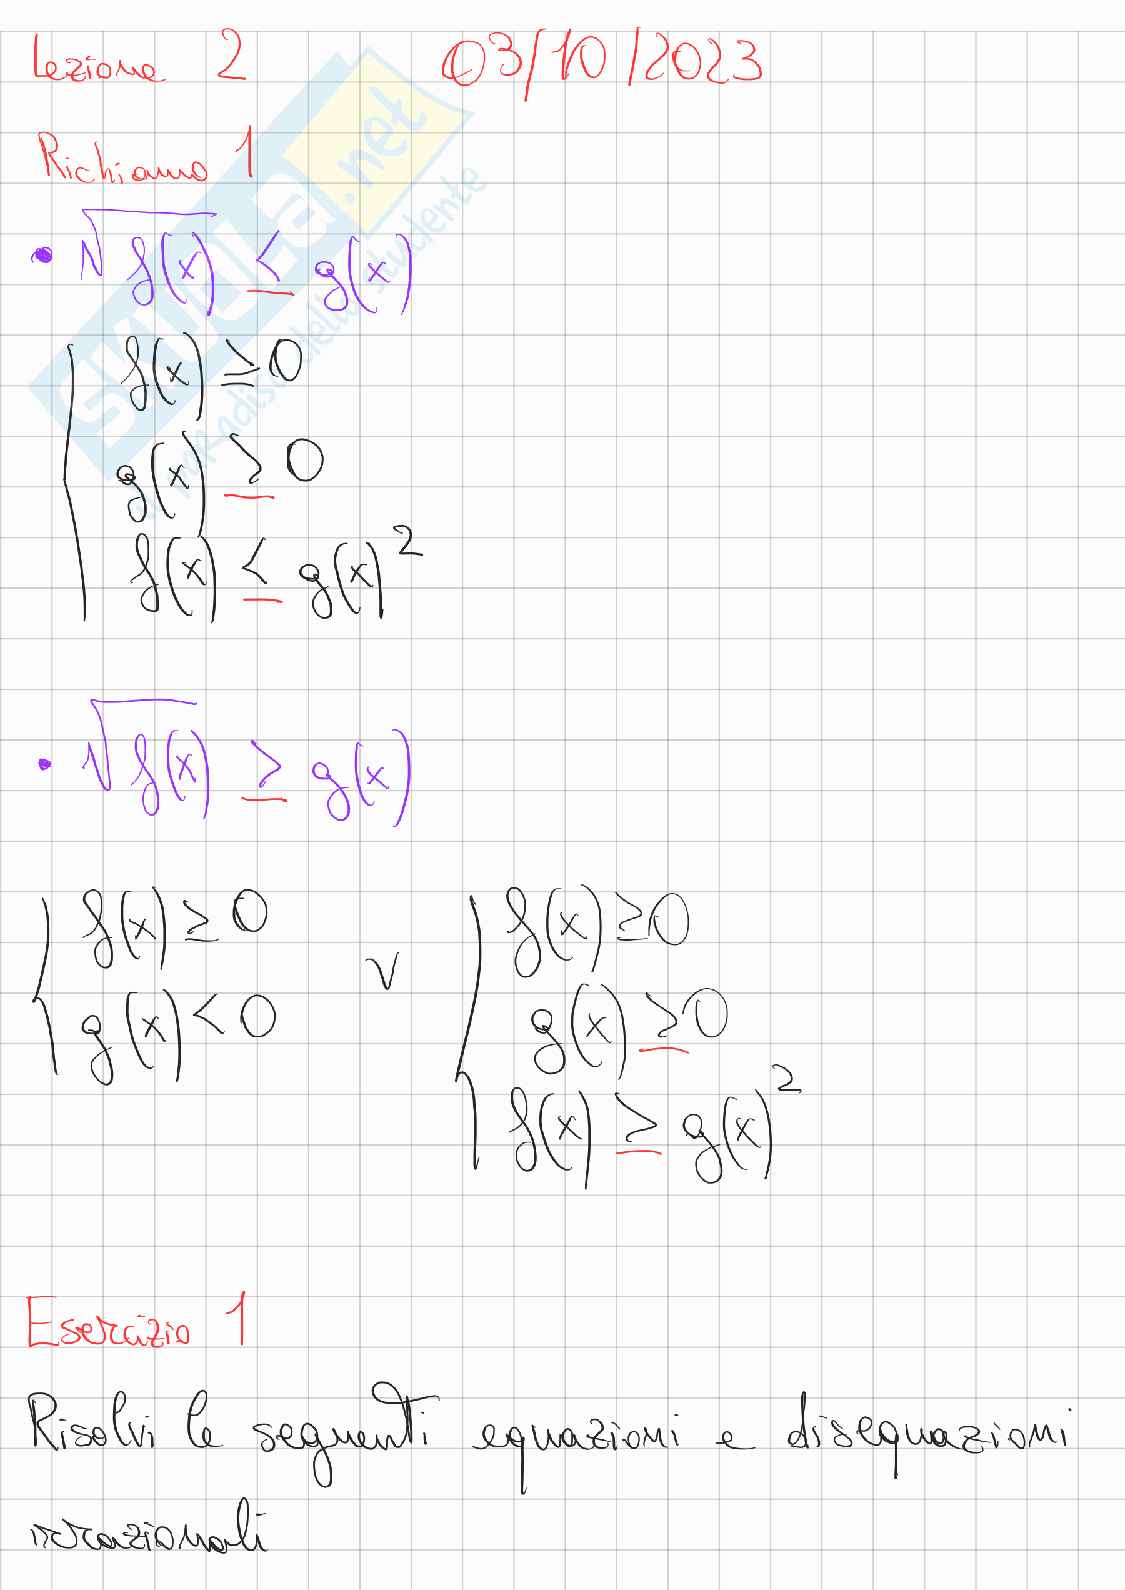 Lezione 2 03/10/2023
Richiamo 1
• √f(x) ≤ g(x)
f(x) ≥ 0
g(x) ≥ 0
f(x) ≤ g(x)²
• √f(x) ≥ g(x)
f(x) ≥ 0 ∨ f(x) ≥ 0
g(x) < 0 g(x) ≥ 0
f(x) ≥ g(x)²
Esercizio 1
Risolvi le seguenti equazioni e disequazioni
irrazionali
SKUOLA.net
paradiso dello studente